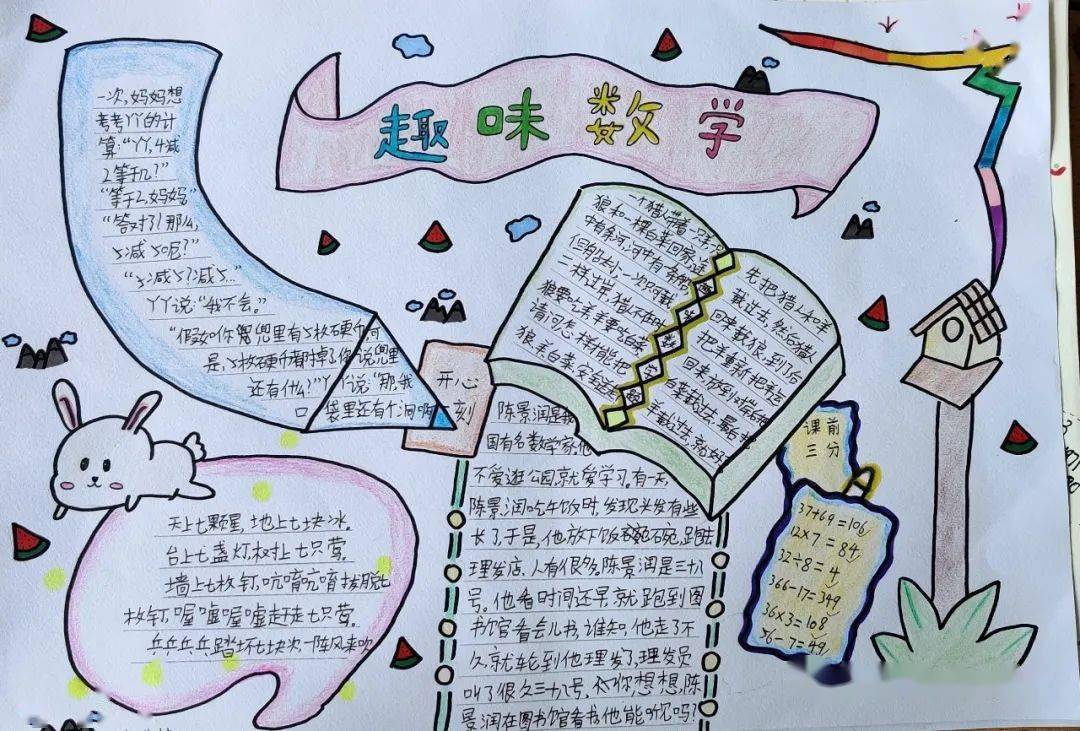 趣味数学
一次，妈妈想
考考丫丫的计
算：“丫丫，4减
2等于几？”
“等于2，妈妈”
“答对了！那么，
5减5呢？”
“5减5？减5…”
丫丫说：“我不会。”
“假如你兜里有5枚硬币，可
是，5枚硬币都掉了，你说兜里
还有什么？”丫丫说：“那我
口袋里还有个洞啊”
开心
一刻
一个猎人带着一只羊，
狼和一棵白菜回家，途
中有条河，河中有条船，
但船太小，一次只可载
二样过岸，猎人不在时，
狼要吃羊，羊要吃白菜
请问怎样才能把
狼、羊、白菜，安全运
先把猎人和羊
载过去，然后猎人
回来载狼，到了后
把羊重新
回来放到对岸
羊载过去，就好
课前
三分
37+69=106
12×7=84
32÷8=4
366-17=349
36×3=108
56-7=49
天上七颗星，地上七块冰。
台上七盏灯，树上七只莺。
墙上七枚钉，吭唷吭唷拔脱七
枚钉，喔嘘喔嘘赶走七只莺。
乒乒乓乓踏坏七块冰，一阵风来吹
陈景润是我
国有名数学家，他
不爱逛公园，就爱学习。有一天，
陈景润吃午饭时，发现头发有些
长了，于是，他放下饭碗，跑去
理发店，人有很多。陈景润是三十八
号。他看时间还早，就跑到图
书馆看会儿书，谁知，他走了不
久，就轮到他理发了，理发员
叫了很久三十八号，你想想，陈
景润在图书馆看书，他能听见吗？